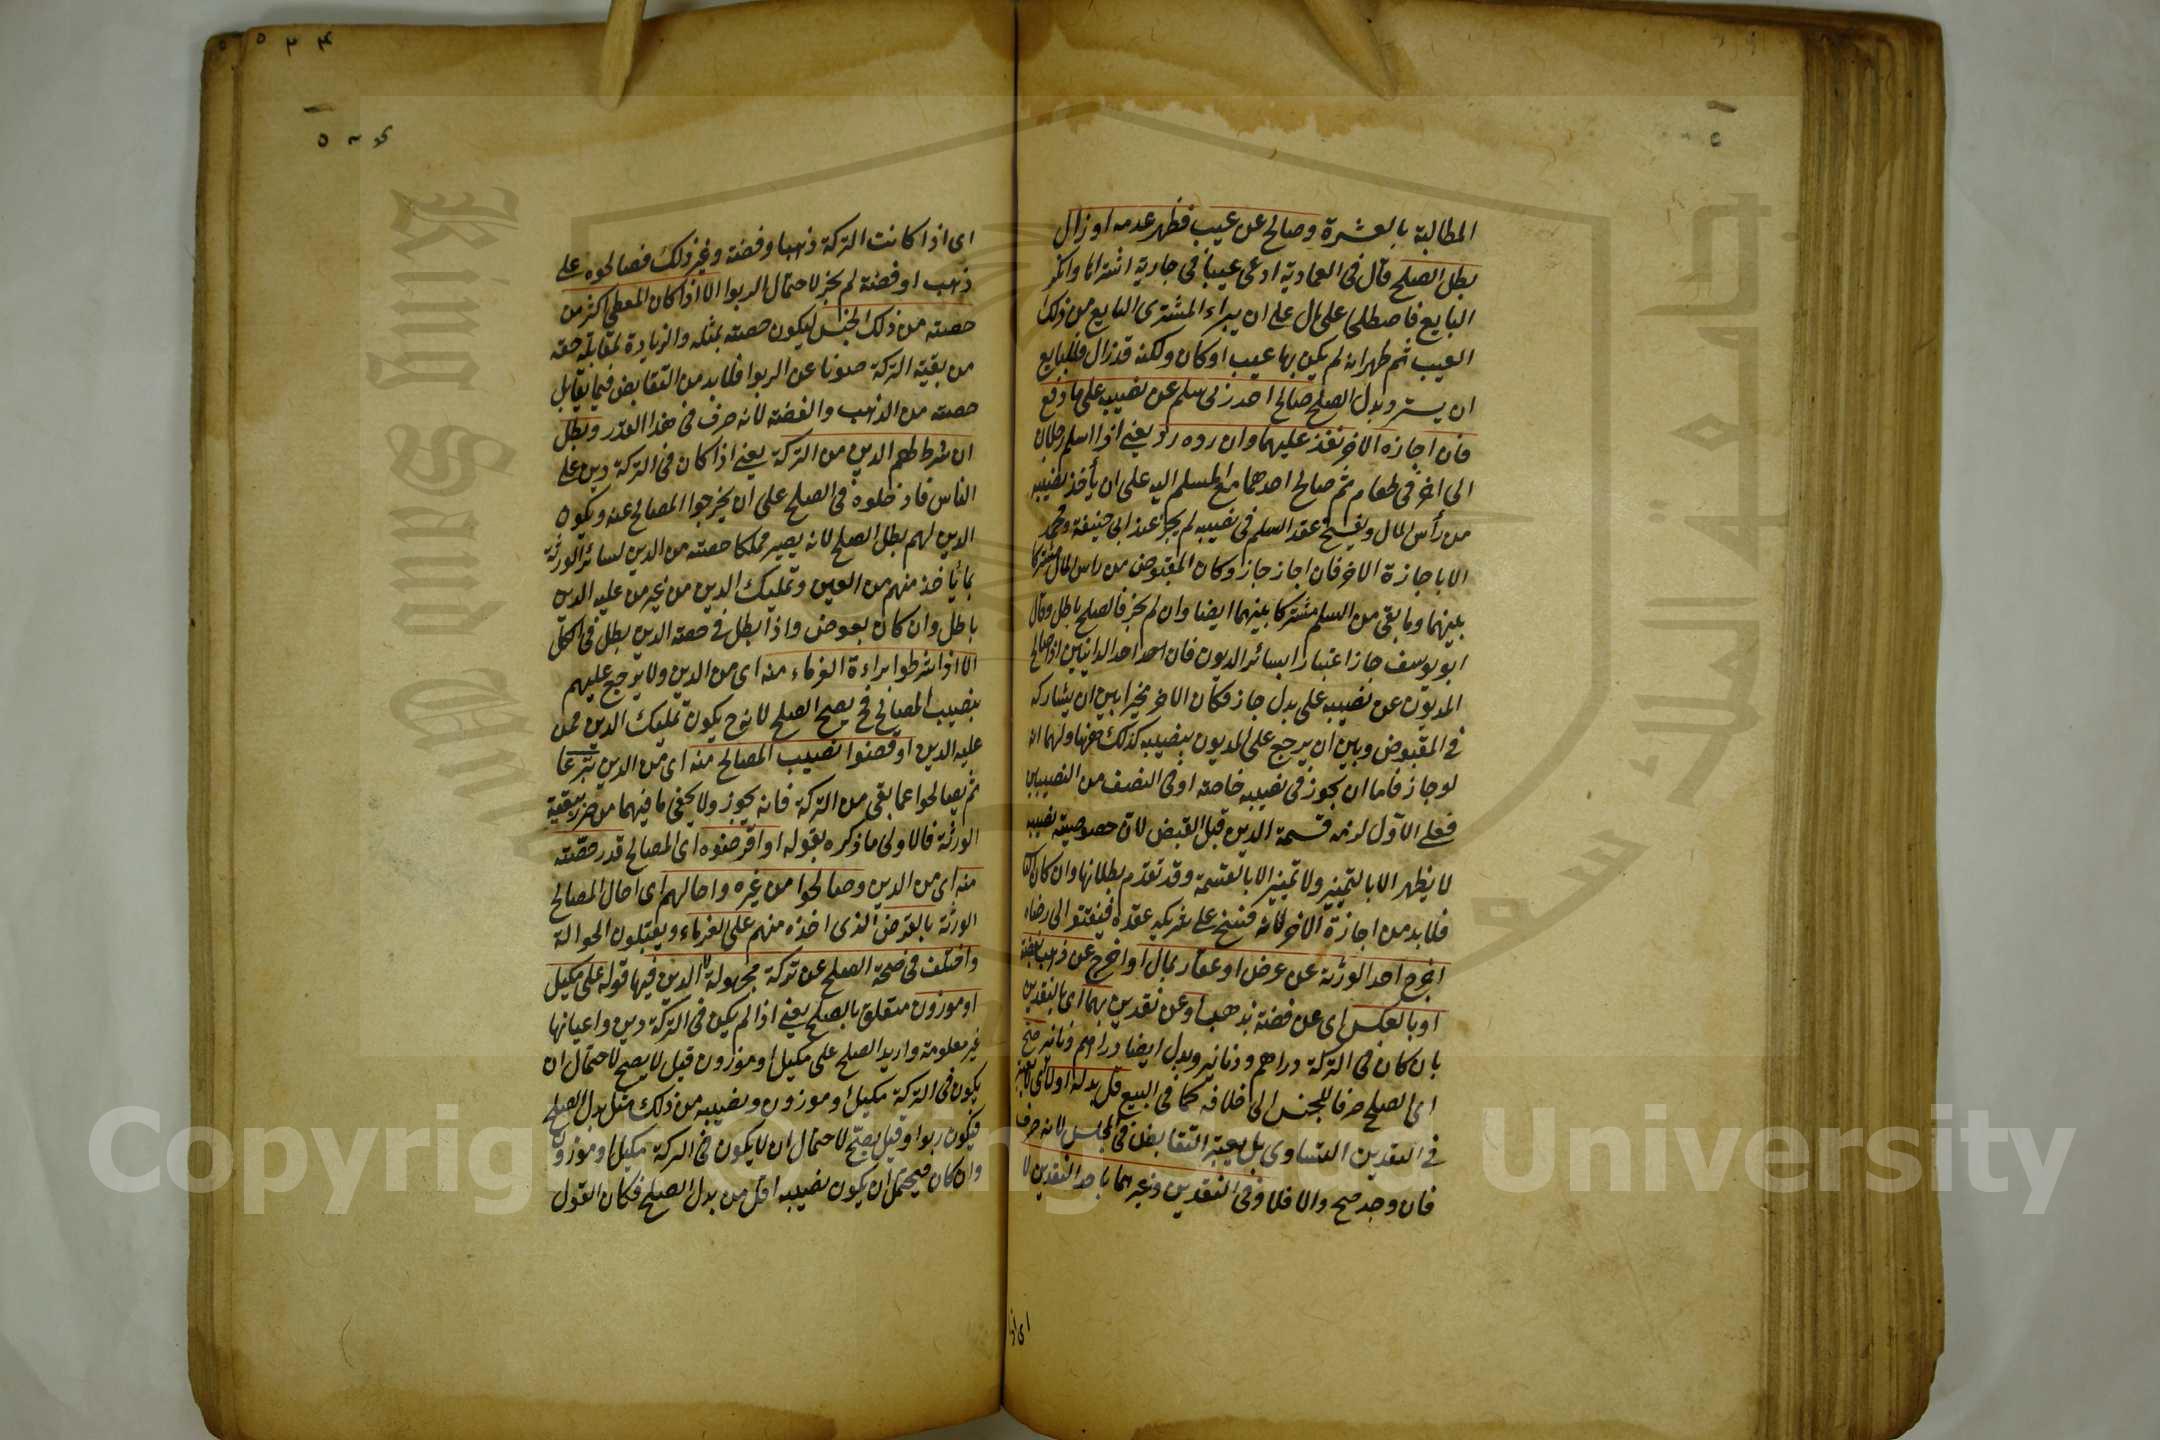 المطالبة بالعشرة وصالح عن عيب فظهر عدمه او زال
بطل الصلح قال في العمادية ادعى عيبا في جارية اشتراها وانكر
البايع فاصطلحا على مال على ان يبراء المشترى البايع من ذلك
العيب ثم ظهر انه لم يكن بها عيب او كان ولكنه قد زال فللبايع
ان يسترد بدل الصلح صالح احد ربى سلم عن نصيبه على ما دفع
فان اجازه الاخر نفذ عليهما وان رده رد يعنى اذا اسلم رجلان
الى اخر في طعام ثم صالح احدهما مع المسلم اليه على ان يأخذ نصيبه
من رأس المال ويفسخ عقد السلم في نصيبه لم يجز عند ابي حنيفة ومحمد
الا باجازة الاخر فان اجاز جاز وكان المقبوض من راس المال مشتركا
بينهما وما بقى من السلم مشتركا بينهما ايضا وان لم يجز فالصلح باطل وقال
ابو يوسف جاز اعتبارا بسائر الديون فان احد الداينين اذا صالح
المديون عن نصيبه على بدل جاز فكان الاخر مخيرا بين ان يشاركه
في المقبوض وبين ان يرجع على المديون بنصيبه كذلك ههنا ولهما انه
لو جاز فاما ان يجوز في نصيبه خاصة او في النصف من النصيبين
فعلى الاول لزمه قسمة الدين قبل القبض لان خصوصية نصيبه
لا يظهر الا بالتمييز ولا تمييز الا بالقسمة وقد تقدم بطلانها وان كان الثانى
فلا بد من اجازة الاخر لانه فسخ على شريكه عقده فيفتقر الى رضاه
اخرج احد الورثة عن عرض او عقار بمال او اخرج عن ذهب بفضة
او بالعكس اى عن فضة بذهب او عن نقدين بهما اى بالنقدين
بان كان في التركة دراهم ودنانير وبدل ايضا دراهم ودنانير صح
اى الصلح صرفا للجنس الى خلافه كما في البيع قل بدله اولا اى لا يعتبر
في النقدين التساوى بل يعتبر التقابض في المجلس لانه صرف
فان وجد صح والا فلا وفي النقدين وغيرهما باحد النقدين لا
اى اذا
اى اذا كانت التركة ذهبا وفضة وغير ذلك فصالحوه على
ذهب او فضة لم يجز لاحتمال الربوا الا اذا كان المعطى اكثر من
حصته من ذلك الجنس ليكون حصته بمثله والزيادة لمقابلة حقه
من بقية التركة صونا عن الربوا فلا بد من التقابض فيما يقابل
حصته من الذهب والفضة لانه صرف في هذا القدر وبطل
ان شرط لهم الدين من التركة يعنى اذا كان في التركة دين على
الناس فادخلوه في الصلح على ان يخرجوا المصالح عنه ويكون
الدين لهم بطل الصلح لانه يصير مملكا حصته من الدين لسائر الورثة
بما يأخذ منهم من العين وتمليك الدين من غير من عليه الدين
باطل وان كان بعوض واذا بطل في حصة الدين بطل في الكل
الا اذا شرطوا براءة الغرماء منه اى من الدين ولا يرجع عليهم
بنصيب المصالح فح يصح الصلح لانه ح يكون تمليك الدين ممن
عليه الدين او قضوا نصيب المصالح منه اى من الدين تبرعا
ثم يصالحوا عما بقى من التركة فانه يجوز ولا يخفى ما فيهما من ضرر بقية
الورثة فالاولى ما ذكره بقوله او اقرضوه اى المصالح قدر حصته
منه اى من الدين وصالحوا من غيره واحالهم اى احال المصالح
الورثة بالقرض الذى اخذه منهم على الغرماء ويقبلون الحوالة
واختلف في صحة الصلح عن تركة مجهولة لا دين فيها قوله على مكيل
او موزون متعلق بالصلح يعنى اذا لم يكن في التركة دين واعيانها
غير معلومة واريد الصلح على مكيل او موزون قيل لا يصح لاحتمال ان
يكون في التركة مكيل او موزون ونصيبه من ذلك مثل بدل الصلح
فيكون ربوا وقيل يصح لاحتمال ان لا يكون في التركة مكيل او موزون
وان كان فيحتمل ان يكون نصيبه اقل من بدل الصلح فكان القول
Copyright © King Saud University
جامعة الملك سعود
King Saud University